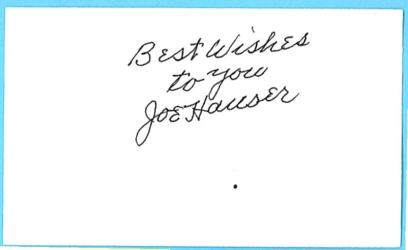 Best Wishes
to you
Joe Hauser